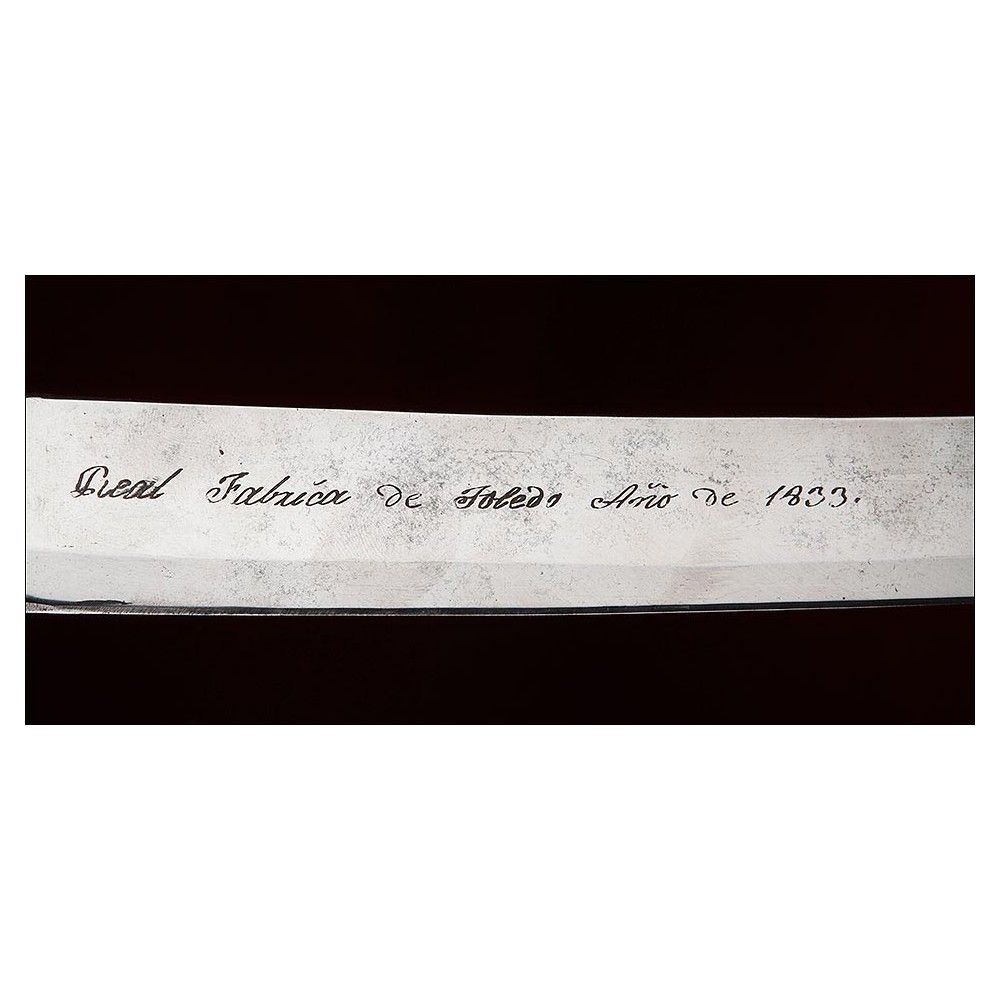 Real Fabrica de Toledo Año de 1833.